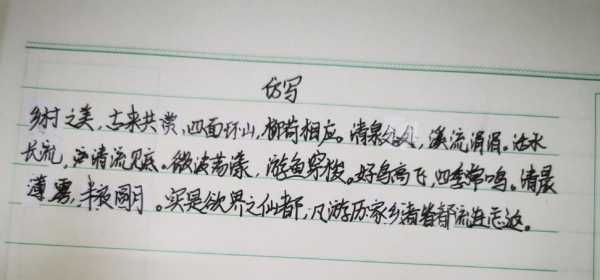 仿写
乡村之美,古来共赏,四面环山,柳荷相应。清泉处处,溪流涓涓。活水
长流,清流见底。微波荡漾,游鱼穿梭。好鸟高飞,四季常鸣。清晨
薄雾,半夜圆月。实是欲界之仙都,凡游历家乡者皆都流连忘返。